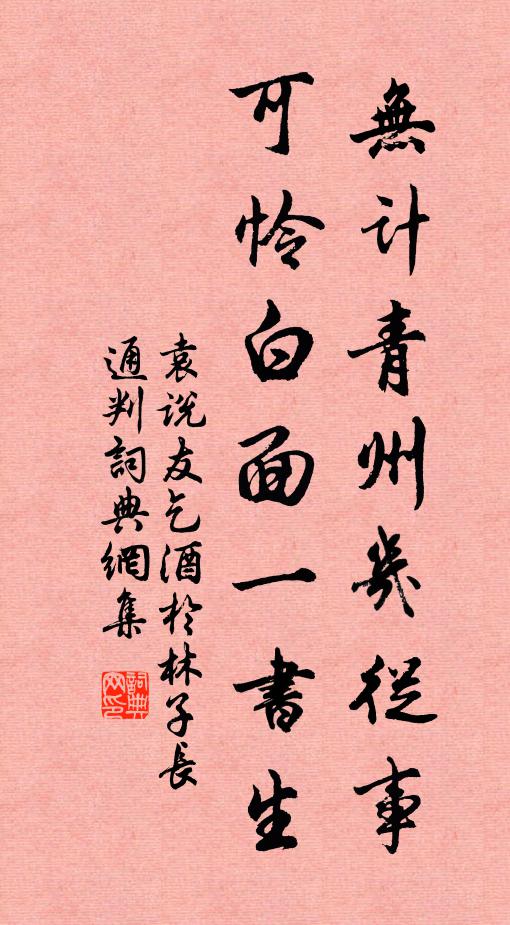 無計青州幾從事
可憐白面一書生
袁說友乞酒於林子長
通判詞典網集
詞典网印